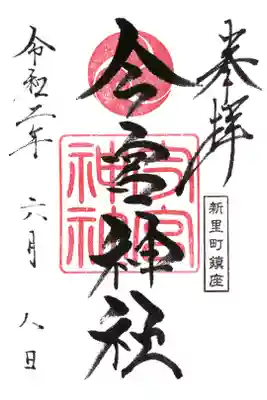 奉拝
新里町鎮座
今宮神社
今宮神社
令和二年 六月 八日